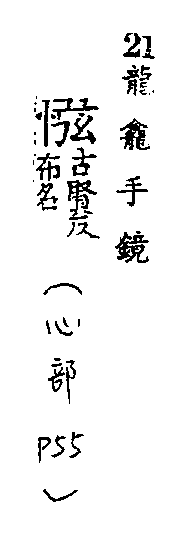 21 龍龕手鏡
古賢反
布名
(心部 P55)